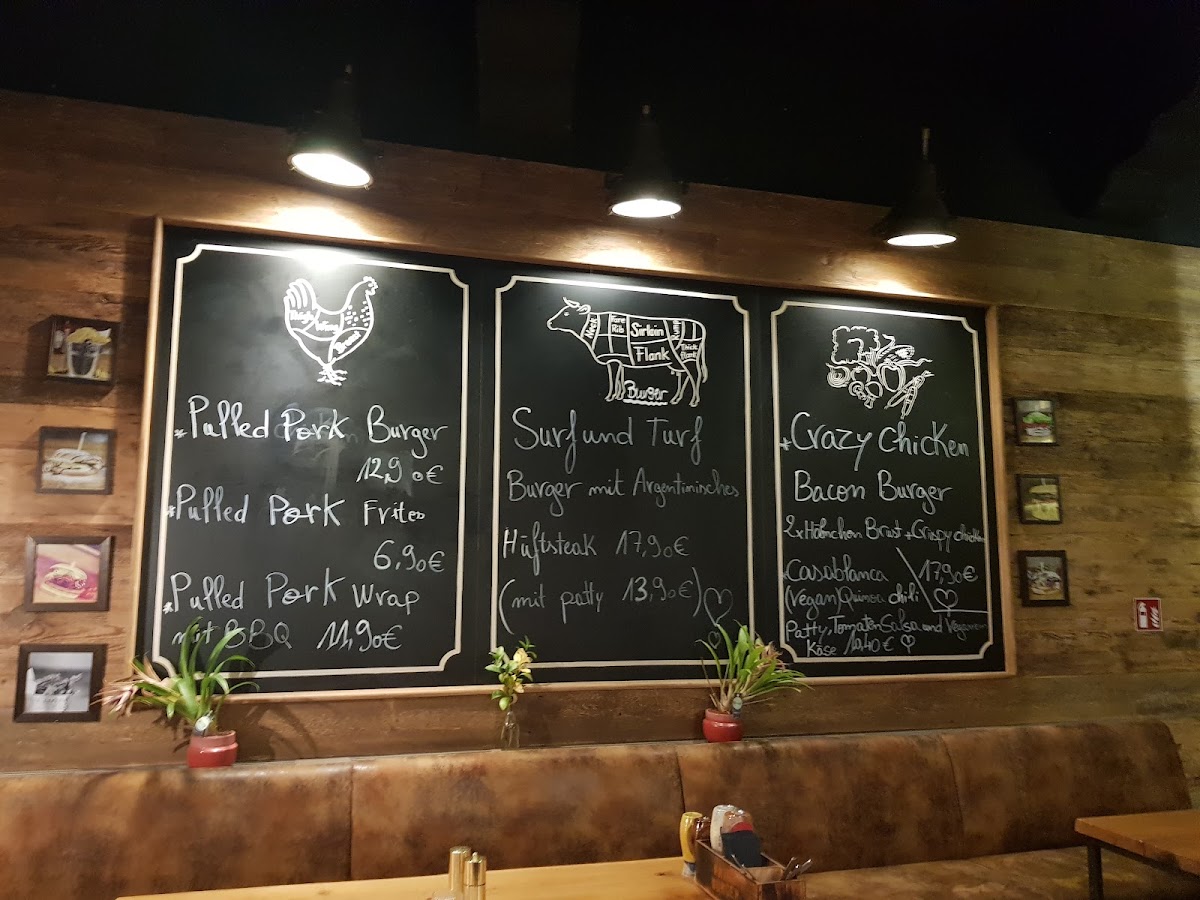 Thigh Wing Breast
*Pulled Pork Burger
12,90€
*Pulled Pork Frites
6,90€
*Pulled Pork Wrap
mit BBQ 11,90€
Neck Fore Rib Sirloin Rump
Flank Thick flank
Burger
Surf und Turf
Burger mit Argentinisches
Hüftsteak 17,90€
(mit patty 13,90€)
*Crazy chicken
Bacon Burger
2x Hähnchen Brust + Crispy chicken
17,90€
*Casablanca
(Vegan) Quinoa chili
Patty, Tomaten Salsa und Veganem
Käse 10,40€